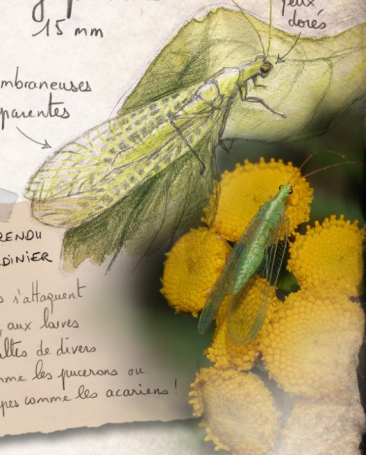 15 mm
yeux
dorés
mbraneuses
parentes
RENDU
DINIER
s s'attaquent
aux larves
ultes de divers
mme les pucerons ou
pes comme les acariens !